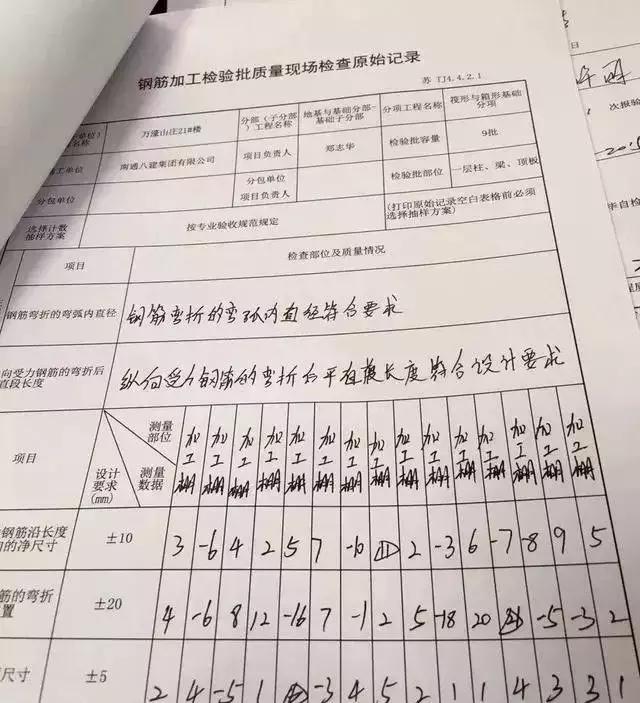 钢筋加工检验批质量现场检查原始记录
苏 TJ4.4.2.1
万濠山庄21#楼 分部（子分部）工程名称 地基与基础分部-基础子分部 分项工程名称 筏形与箱形基础分项
工单位 南通八建集团有限公司 项目负责人 郑志华 检验批容量 9批
分包单位 分包单位项目负责人 检验批部位 一层柱、梁、顶板
选择计数抽样方案 按专业验收规范规定 (打印原始记录空白表格前必须选择抽样方案)
项目 检查部位及质量情况
钢筋弯折的弯弧内直径 钢筋弯折的弯弧内直径符合要求
向受力钢筋的弯折后
直段长度
纵向受力钢筋的弯折后平直段长度符合设计要求
项目 设计要求(mm) 测量部位 测量数据
加工棚 加工棚 加工棚 加工棚 加工棚 加工棚 加工棚 加工棚 加工棚 加工棚 加工棚 加工棚 加工棚 加工棚 加工棚
钢筋沿长度
的净尺寸
±10 3 -6 4 2 5 7 -10 ⑪ 2 -3 6 -7 -8 9 5
筋的弯折
置
±20 4 -6 8 12 -16 7 -1 2 5 -18 20 -5 -3 2
尺寸 ±5 2 4 -5 1 -3 4 5 2 1 1 4 3 3 1
次报验
自检